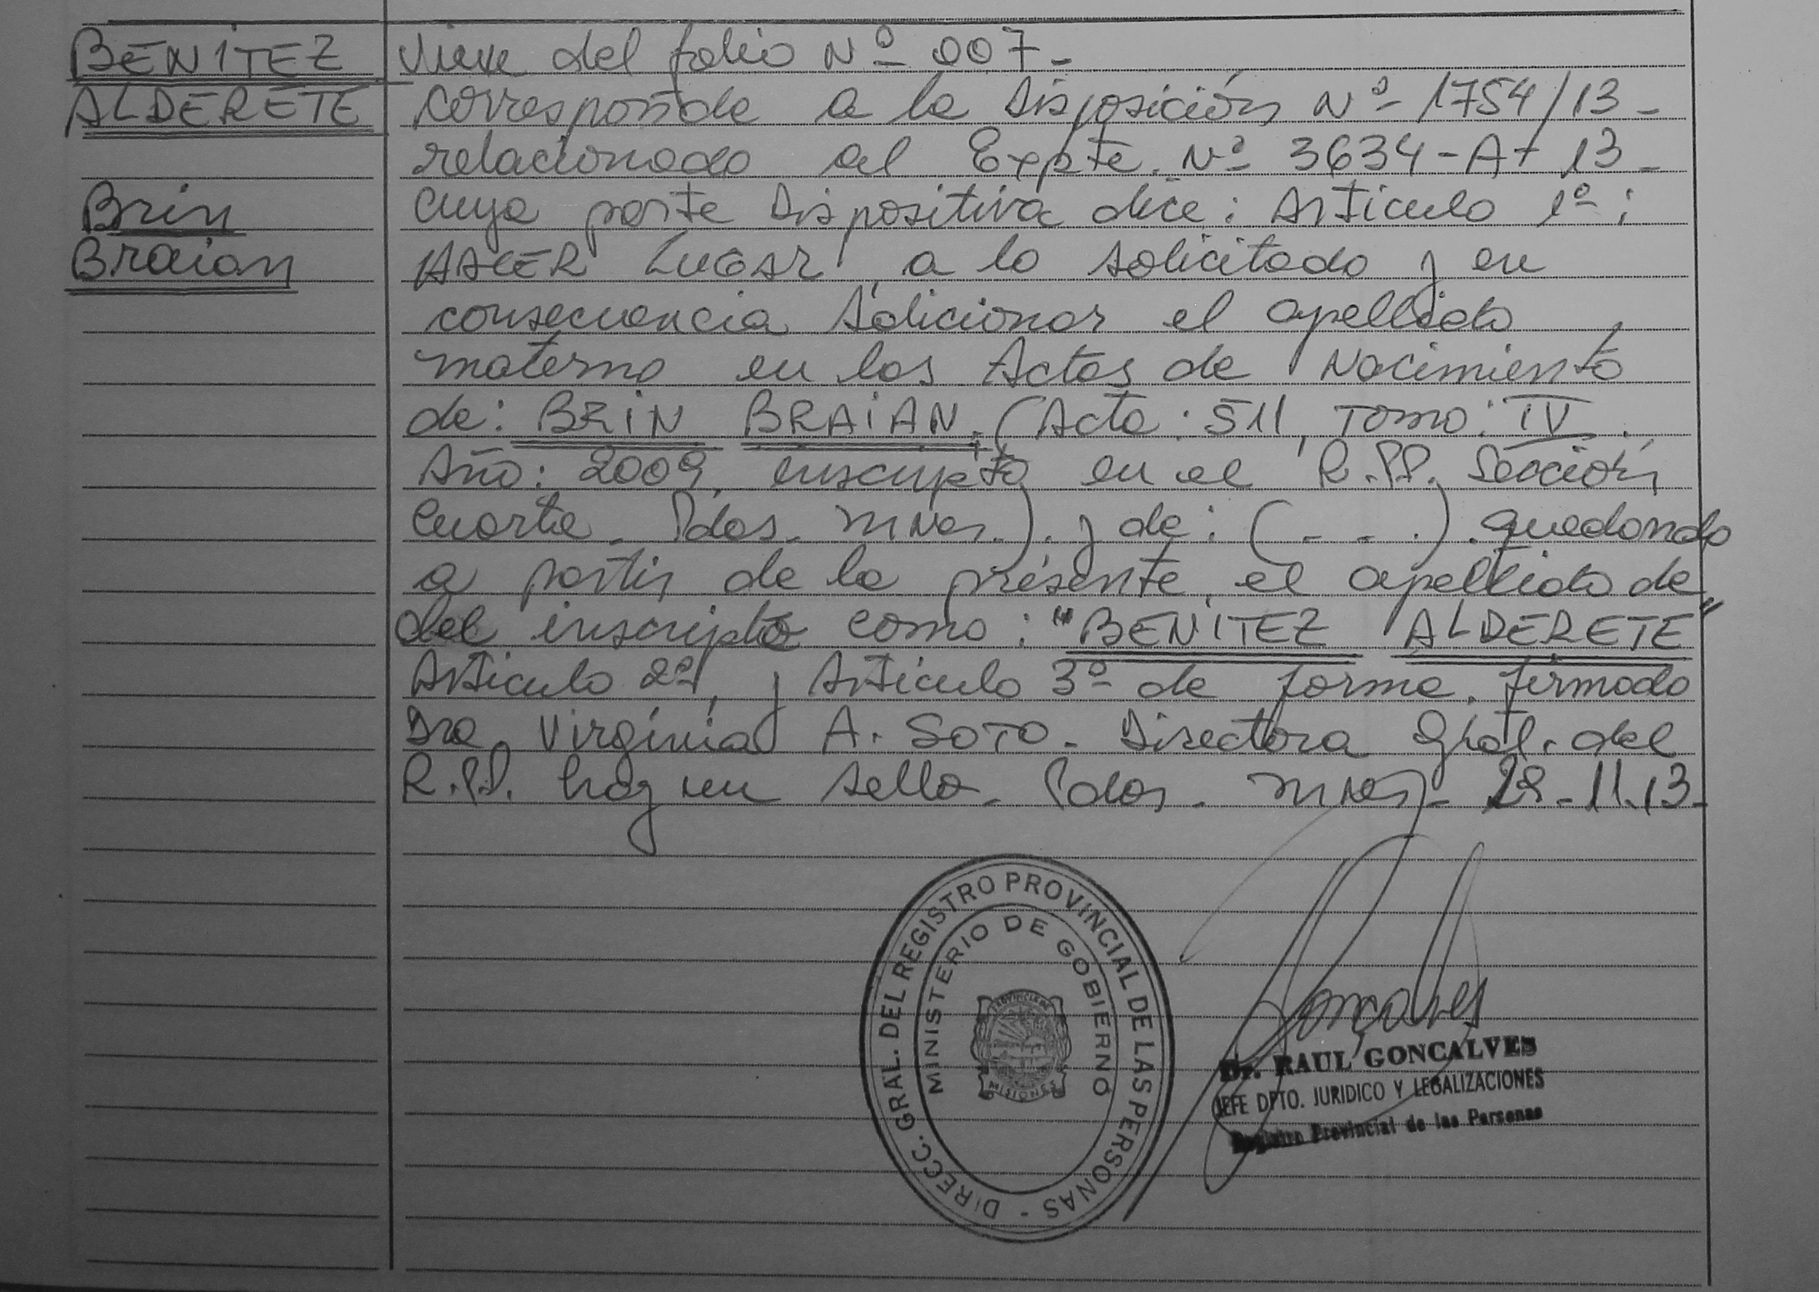 BENITEZ
ALDERETE
Brin
Braian
Viene del folio Nº 007-
corresponde a la Disposición Nº 1754/13-
relacionado al Expte. Nº 3634-A-13-
cuya parte Dispositiva dice: Artículo 1º:
HACER LUGAR a lo solicitado y en
consecuencia Adicionar el apellido
materno en las Actas de Nacimiento
de: BRIN BRAIAN. (Acta: 511, Tomo: IV
Año: 2009, inscripto en el R.P.P. Sección
Cuarta. Pdas. Mnes.). y de: (- - .). quedando
a partir de la presente, el apellido de
del inscripto como: "BENITEZ ALDERETE"
Artículo 2º, y Artículo 3º de forma. firmado
Dra. Virginia A. SOTO. Directora Gral. del
R.P.P. hay un sello. Pdas. Mnes.- 28-11-13-
DIRECC. GRAL. DEL REGISTRO PROVINCIAL DE LAS PERSONAS -
MINISTERIO DE GOBIERNO
PROVINCIA DE
MISIONES
Gonçalves
Dr. RAUL GONÇALVES
JEFE DPTO. JURIDICO Y LEGALIZACIONES
Registro Provincial de las Personas